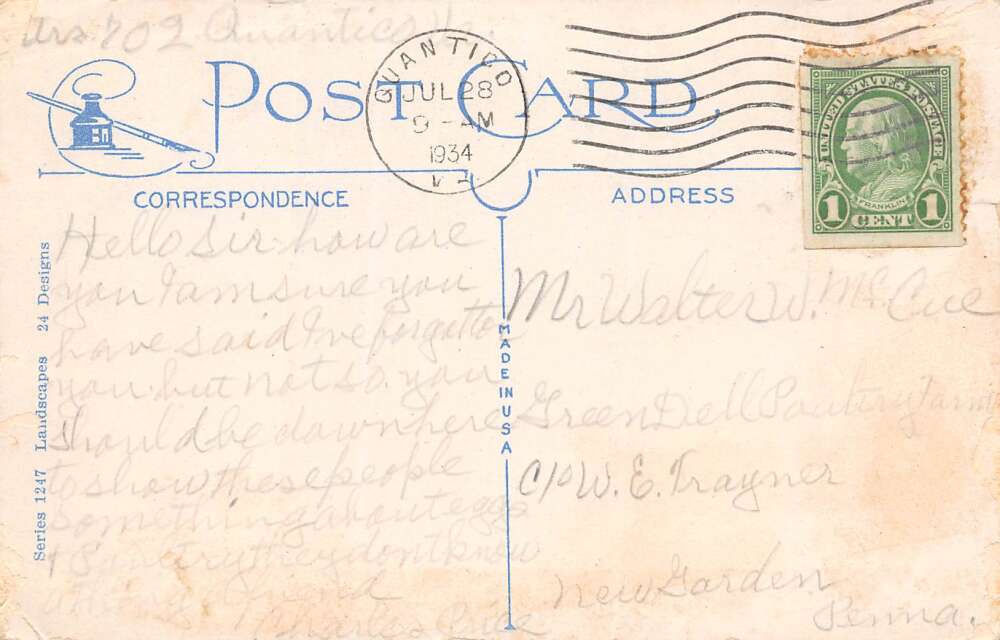 Qrs. 702 Quantico Va.
QUANTICO
JUL 28
9 - AM
1934
VA
POST CARD
UNITED STATES POSTAGE
FRANKLIN
1 CENT 1
CORRESPONDENCE
ADDRESS
Series 1247 Landscapes 24 Designs
MADE IN USA
Hello Sir how are
you I am sure you
have said I've forgotten
you but not so you
should be down here
to show these people
something about eggs
& Poultry they don't know
a thing friend
Charles Price
Mr Walter W. McCue
Green Dell Poultry Farm
c/o W. E. Trayner
New Garden
Penna.